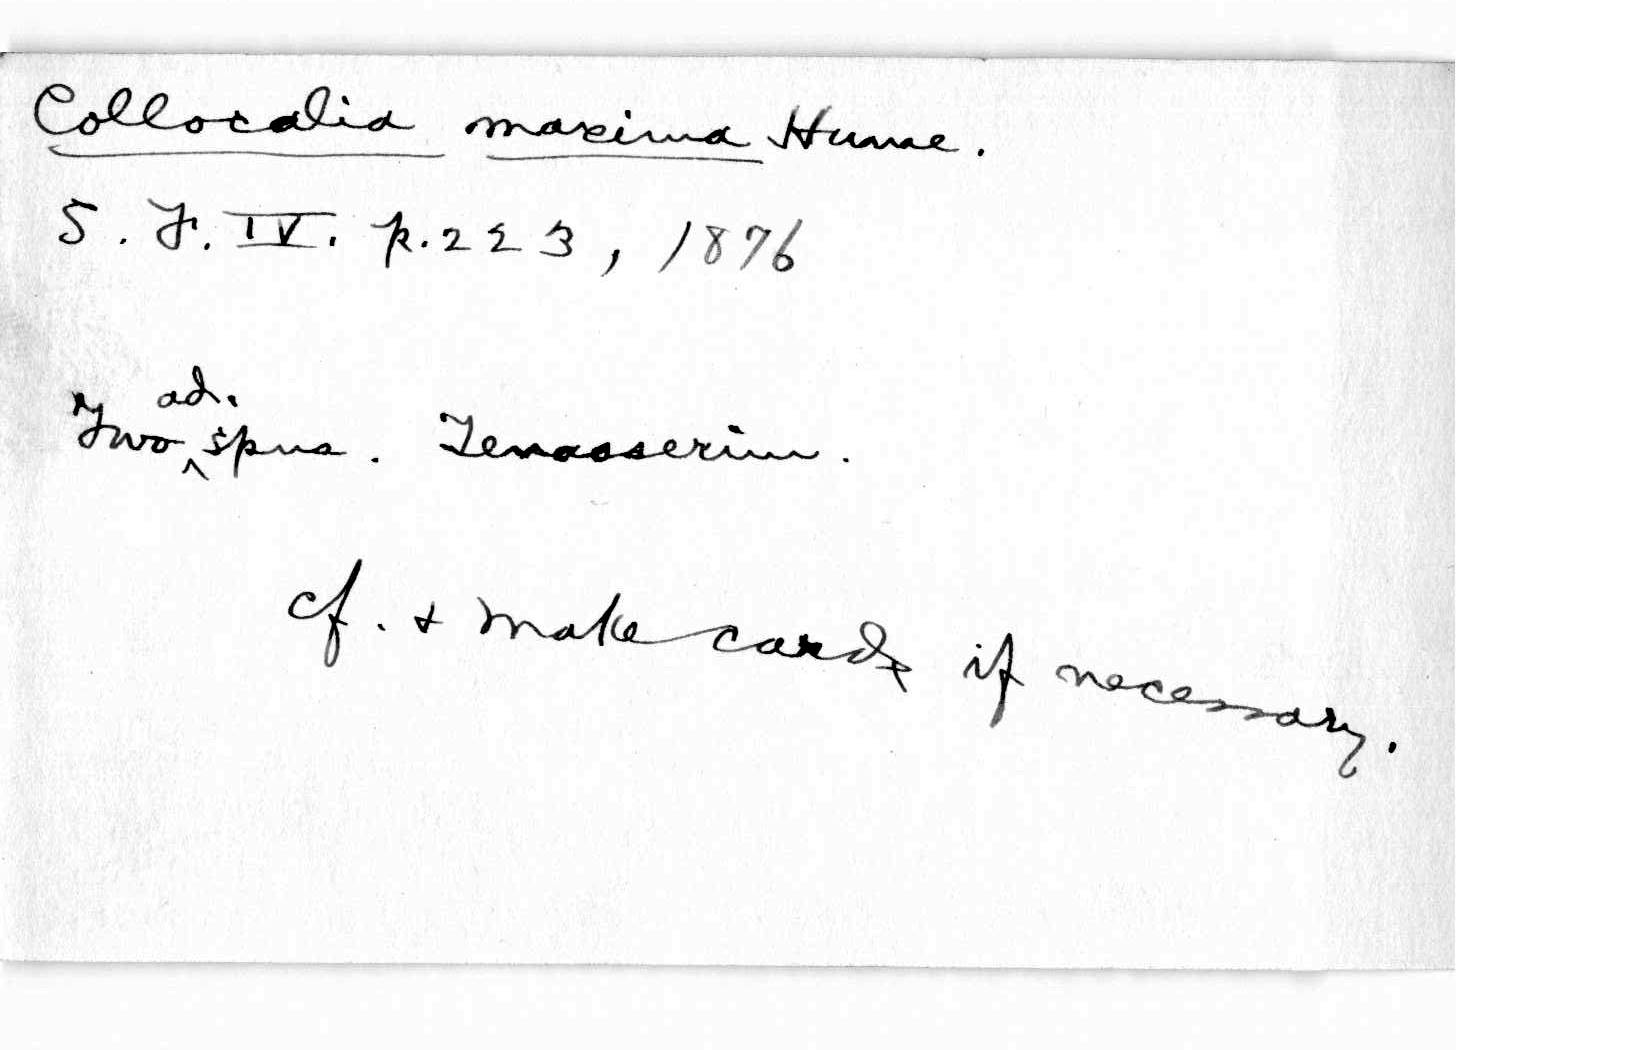 Collocalia maxima Hume.
S. F. IV. p. 223, 1876
Two ad. spns. Tenasserim.
cf. & make cards if necessary.